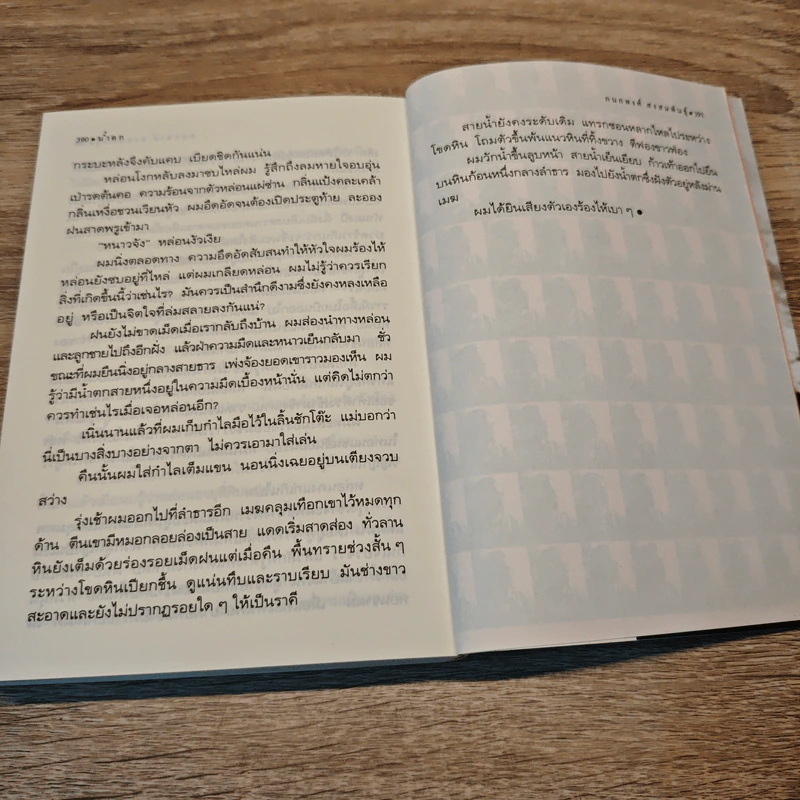 ๖๐ • น้ำตก
กระบะหลังจึงคับแคบ เบียดชิดกันแน่น
หล่อนโงกหลับลงมาซบไหล่ผม รู้สึกถึงลมหายใจอบอุ่น
เป่ารดต้นคอ ความร้อนจากตัวหล่อนแผ่ซ่าน กลิ่นแป้งคละเคล้า
กลิ่นเหงื่อชวนเวียนหัว ผมอึดอัดจนต้องเปิดประตูท้าย ละออง
ฝนสาดพรูเข้ามา
"หนาวจัง" หล่อนงัวเงีย
ผมนิ่งตลอดทาง ความอึดอัดสับสนทำให้หัวใจผมร้องไห้
หล่อนยังซบอยู่ที่ไหล่ แต่ผมเกลียดหล่อน ผมไม่รู้ว่าควรเรียก
สิ่งที่เกิดขึ้นนี้ว่าเช่นไร? มันควรเป็นสำนึกดีงามซึ่งยังคงหลงเหลือ
อยู่ หรือเป็นจิตใจที่ล่มสลายลงกันแน่?
ฝนยังไม่ขาดเม็ดเมื่อเรากลับถึงบ้าน ผมส่องนำทางหล่อน
และลูกชายไปถึงอีกฝั่ง แล้วฝ่าความมืดและหนาวเย็นกลับมา ชั่ว
ขณะที่ผมยืนนิ่งอยู่กลางสายธาร เพ่งจ้องยอดเขาราวมองเห็น ผม
รู้ว่ามีน้ำตกสายหนึ่งอยู่ในความมืดเบื้องหน้านั่น แต่คิดไม่ตกว่า
ควรทำเช่นไรเมื่อเจอหล่อนอีก?
เนิ่นนานแล้วที่ผมเก็บกำไลมือไว้ในลิ้นชักโต๊ะ แม่บอกว่า
นี่เป็นบางสิ่งบางอย่างจากตา ไม่ควรเอามาใส่เล่น
คืนนั้นผมใส่กำไลเต็มแขน นอนนิ่งเฉยอยู่บนเตียงจวบ
สว่าง
รุ่งเช้าผมออกไปที่ลำธารอีก เมฆคลุมเทือกเขาไว้หมดทุก
ด้าน ตีนเขามีหมอกลอยล่องเป็นสาย แดดเริ่มสาดส่อง ทั่วลาน
หินยังเต็มด้วยร่องรอยเม็ดฝนแต่เมื่อคืน พื้นทรายช่วงสั้น ๆ
ระหว่างโขดหินเปียกชื้น ดูแน่นทึบและราบเรียบ มันช่างขาว
สะอาดและยังไม่ปรากฏรอยใด ๆ ให้เป็นราคี
กนกพงศ์ สงสมพันธุ์
สายน้ำยังคงระดับเดิม แทรกซอนหลากไหลไประหว่าง
โขดหิน โถมตัวขึ้นพ้นแนวหินที่ทิ้งขวาง ตีฟองขาวฟ่อง
ผมวักน้ำขึ้นลูบหน้า สายน้ำเย็นเยียบ ก้าวเท้าออกไปยืน
บนหินก้อนหนึ่งกลางลำธาร มองไปยังน้ำตกซึ่งฝังตัวอยู่หลังม่าน
เมฆ
ผมได้ยินเสียงตัวเองร้องไห้เบา ๆ •